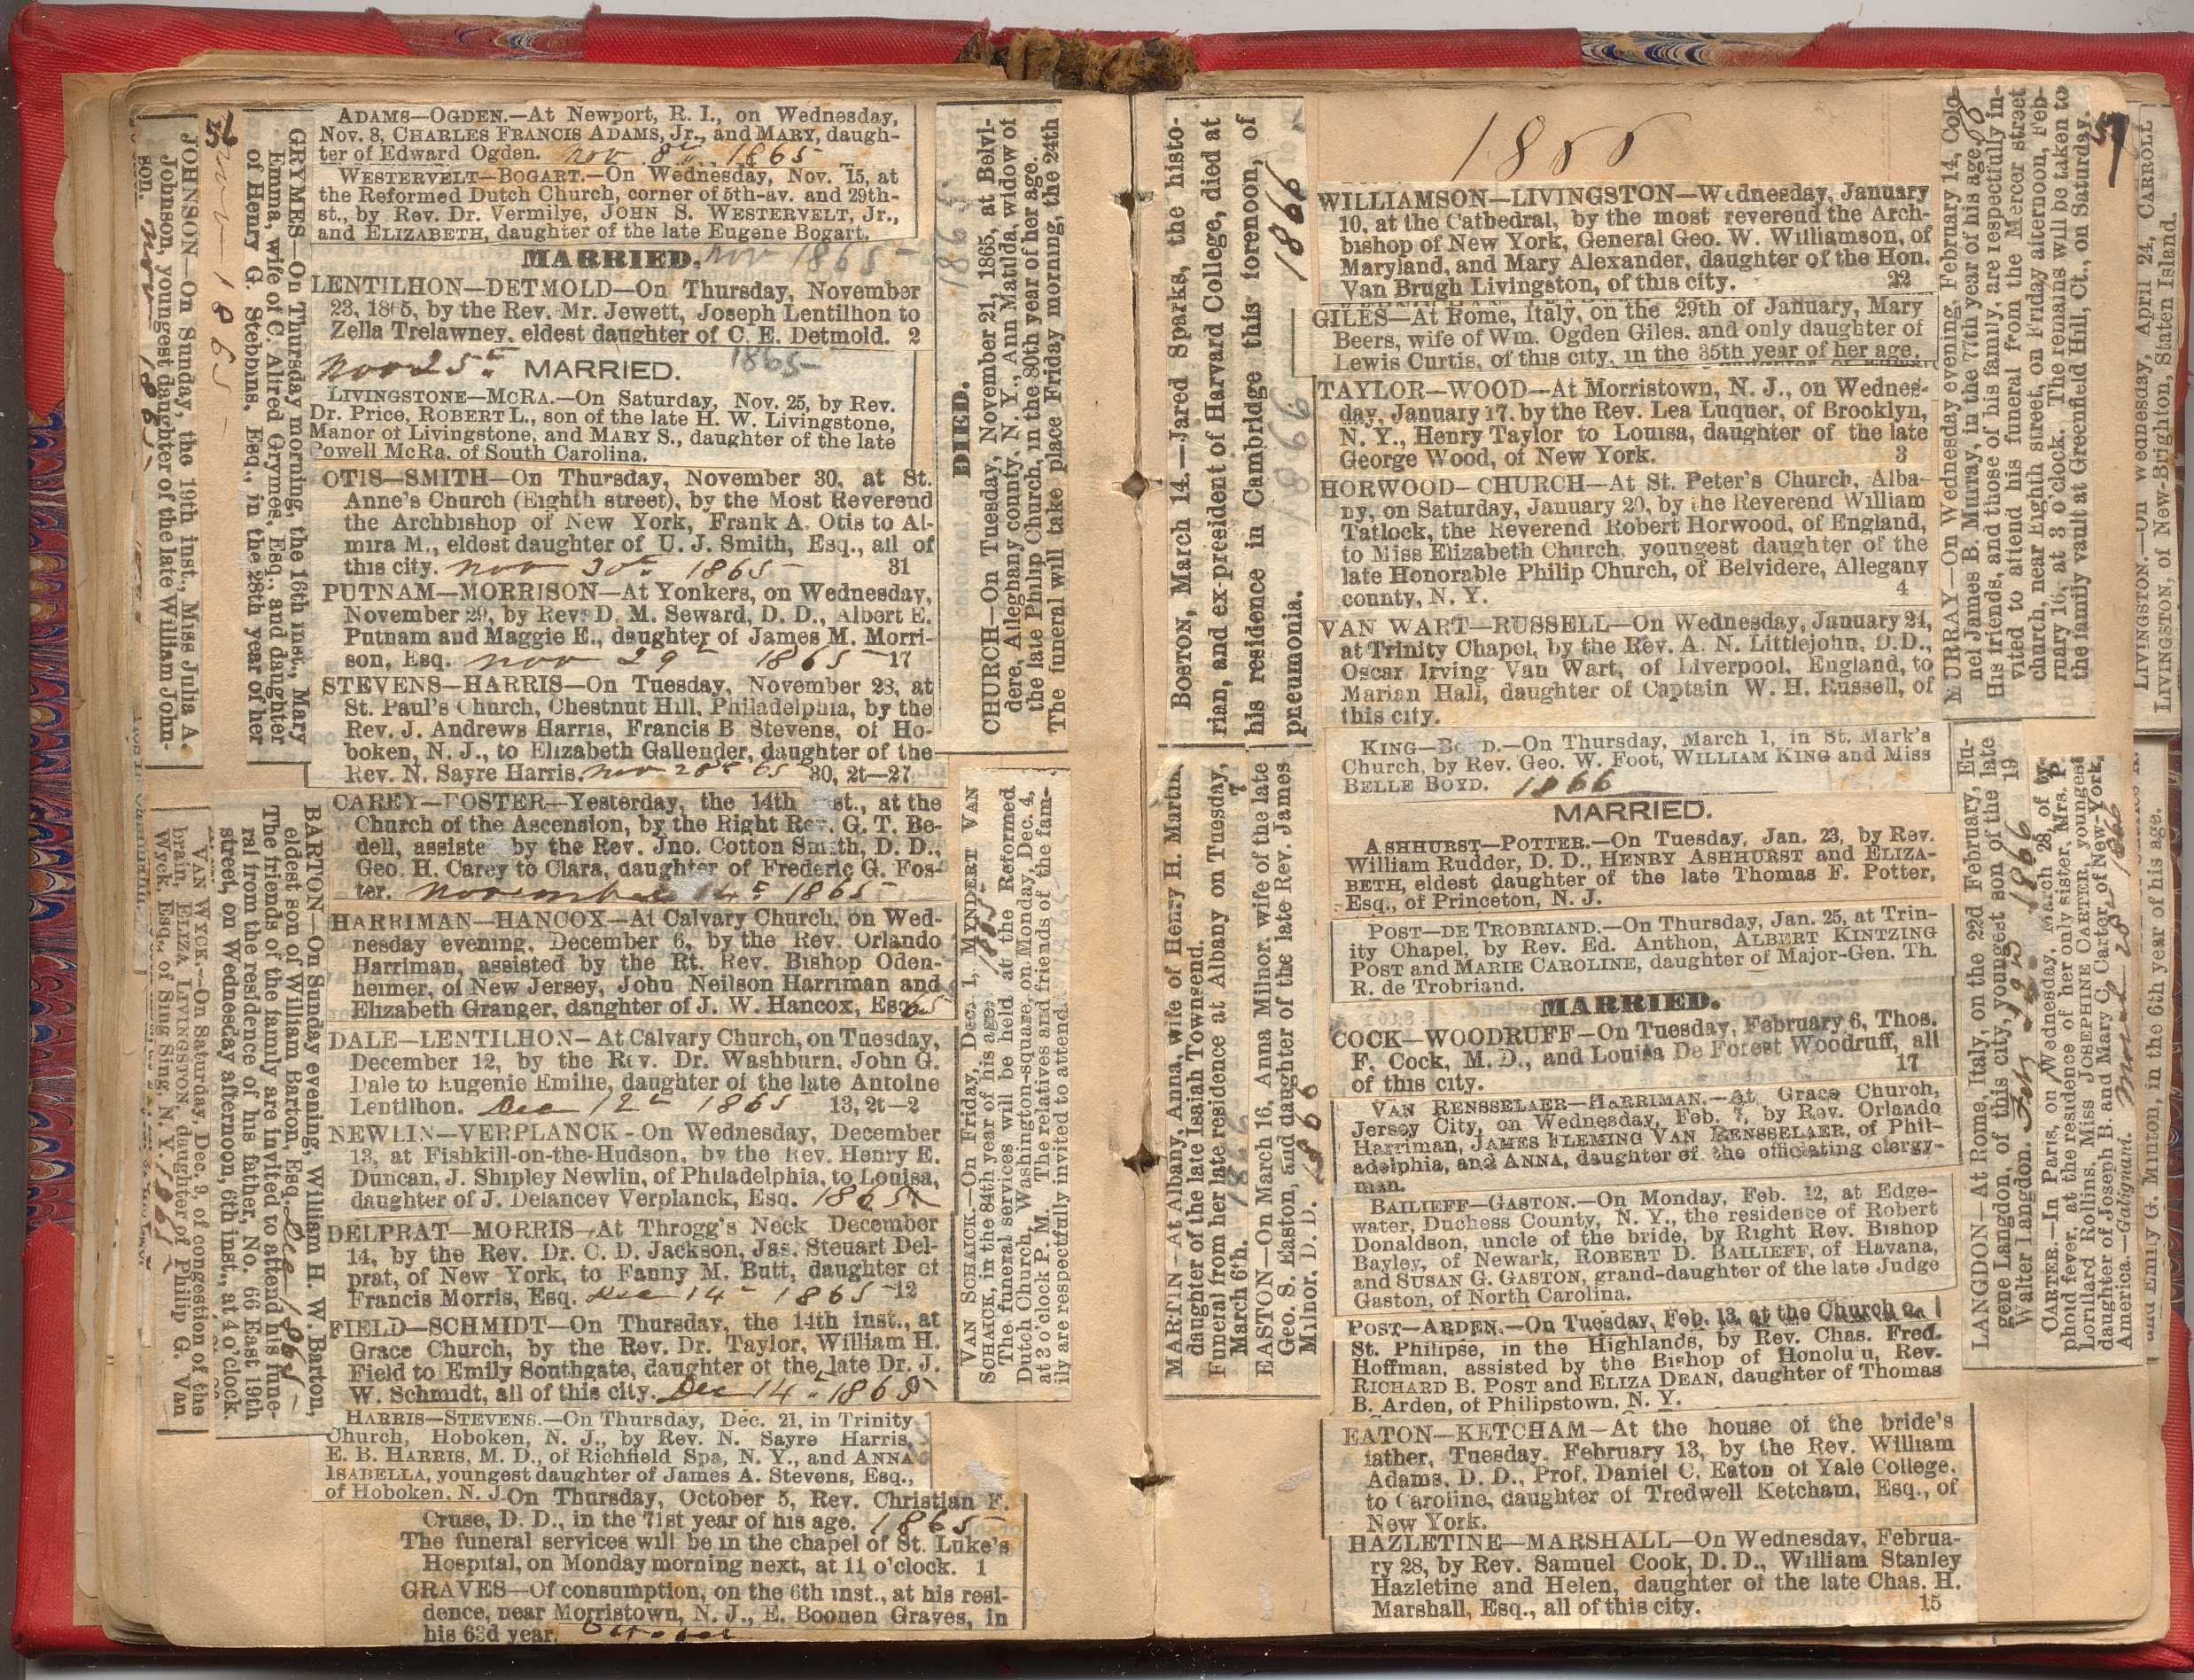 56
JOHNSON—On Sunday, the 19th inst., Miss Julia A.
Johnson, youngest daughter of the late William John-
son. Nov 1865
Nov 1865
GRYMES—On Thursday morning, the 16th inst., Mary
Emma, wife of C. Alfred Grymes, Esq., and daughter
of Henry G. Stebbins, Esq., in the 28th year of her
VAN WYCK.—On Saturday, Dec. 9, of congestion of the
brain, ELIZA LIVINGSTON, daughter of Philip G. Van
Wyck, Esq., of Sing Sing, N. Y. 1865
BARTON—On Sunday evening, William H. W. Barton,
eldest son of William Barton, Esq. Dec 1865
The friends of the family are invited to attend his fune-
ral from the residence of his father, No. 66 East 19th
street, on Wednesday afternoon, 6th inst., at 4 o'clock.
ADAMS—OGDEN.—At Newport, R. I., on Wednesday,
Nov. 8, CHARLES FRANCIS ADAMS, Jr., and MARY, daugh-
ter of Edward Ogden. Nov 8th 1865
WESTERVELT—BOGART.—On Wednesday, Nov. 15, at
the Reformed Dutch Church, corner of 5th-av. and 29th-
st., by Rev. Dr. Vermilye, JOHN S. WESTERVELT, Jr.,
and ELIZABETH, daughter of the late Eugene Bogart.
MARRIED. Nov 1865
LENTILHON—DETMOLD—On Thursday, November
23, 1865, by the Rev. Mr. Jewett, Joseph Lentilhon to
Zella Trelawney, eldest daughter of C. E. Detmold. 2
Nov 25th MARRIED. 1865
LIVINGSTONE—MCRA.—On Saturday, Nov. 25, by Rev.
Dr. Price, ROBERT L., son of the late H. W. Livingstone,
Manor of Livingstone, and MARY S., daughter of the late
Powell McRa, of South Carolina.
OTIS—SMITH—On Thursday, November 30, at St.
Anne's Church (Eighth street), by the Most Reverend
the Archbishop of New York, Frank A. Otis to Al-
mira M., eldest daughter of U. J. Smith, Esq., all of
this city. Nov 30th 1865 31
PUTNAM—MORRISON—At Yonkers, on Wednesday,
November 29, by Rev. D. M. Seward, D. D., Albert E.
Putnam and Maggie E., daughter of James M. Morri-
son, Esq. Nov 29th 1865 17
STEVENS—HARRIS—On Tuesday, November 28, at
St. Paul's Church, Chestnut Hill, Philadelphia, by the
Rev. J. Andrews Harris, Francis B. Stevens, of Ho-
boken, N. J., to Elizabeth Gallender, daughter of the
Rev. N. Sayre Harris. Nov 28th 65 30, 2t—27
CAREY—FOSTER—Yesterday, the 14th inst., at the
Church of the Ascension, by the Right Rev. G. T. Be-
dell, assiste by the Rev. Jno. Cotton Smith, D. D.,
Geo. H. Carey to Clara, daughter of Frederic G. Fos-
ter. November 14th 1865
HARRIMAN—HANCOX—At Calvary Church, on Wed-
nesday evening, December 6, by the Rev. Orlando
Harriman, assisted by the Rt. Rev. Bishop Oden-
heimer, of New Jersey, John Neilson Harriman and
Elizabeth Granger, daughter of J. W. Hancox, Esq. 65
DALE—LENTILHON—At Calvary Church, on Tuesday,
December 12, by the Rev. Dr. Washburn, John G.
Dale to Eugenie Emilie, daughter of the late Antoine
Lentilhon. Dec 12th 1865 13, 2t—2
NEWLIN—VERPLANCK—On Wednesday, December
13, at Fishkill-on-the-Hudson, by the Rev. Henry E.
Duncan, J. Shipley Newlin, of Philadelphia, to Louisa,
daughter of J. Delancey Verplanck, Esq. 1865
DELPRAT—MORRIS—At Throgg's Neck December
14, by the Rev. Dr. C. D. Jackson, Jas. Steuart Del-
prat, of New York, to Fanny M. Butt, daughter of
Francis Morris, Esq. Dec 14th 1865 12
FIELD—SCHMIDT—On Thursday, the 14th inst., at
Grace Church, by the Rev. Dr. Taylor, William H.
Field to Emily Southgate, daughter of the late Dr. J.
W. Schmidt, all of this city. Dec 14th 1865
HARRIS—STEVENS.—On Thursday, Dec. 21, in Trinity
Church, Hoboken, N. J., by Rev. N. Sayre Harris,
E. B. HARRIS, M. D., of Richfield Spa, N. Y., and ANNA
ISABELLA, youngest daughter of James A. Stevens, Esq.,
of Hoboken, N. J.
On Thursday, October 5, Rev. Christian F.
Cruse, D. D., in the 71st year of his age. 1865
The funeral services will be in the chapel of St. Luke's
Hospital, on Monday morning next, at 11 o'clock. 1
GRAVES—Of consumption, on the 6th inst., at his resi-
dence, near Morristown, N. J., E. Boonen Graves, in
his 63d year. October
1865
DIED.
CHURCH—On Tuesday, November 21, 1865, at Belvi-
dere, Alleghany county, N. Y., Ann Matilda, widow of
the late Philip Church, in the 80th year of her age.
The funeral will take place Friday morning, the 24th
VAN SCHAICK.—On Friday, Dec. 1, MYNDERT VAN
SCHAICK, in the 84th year of his age. 1865
The funeral services will be held at the Reformed
Dutch Church, Washington-square, on Monday, Dec. 4,
at 3 o'clock P. M. The relatives and friends of the fam-
ily are respectfully invited to attend.
BOSTON, March 14.—Jared Sparks, the histo-
rian, and ex-president of Harvard College, died at
his residence in Cambridge this forenoon, of
pneumonia. 1866
1866
MARTIN—At Albany, Anna, wife of Henry H. Martin,
daughter of the late Isaiah Townsend.
Funeral from her late residence at Albany on Tuesday,
March 6th. 1866 7
EASTON—On March 16, Anna Milnor, wife of the late
Geo. S. Easton, and daughter of the late Rev. James
Milnor, D. D. 1866
1866
WILLIAMSON—LIVINGSTON—Wednesday, January
10, at the Cathedral, by the most reverend the Arch-
bishop of New York, General Geo. W. Williamson, of
Maryland, and Mary Alexander, daughter of the Hon.
Van Brugh Livingston, of this city. 22
GILES—At Rome, Italy, on the 29th of January, Mary
Beers, wife of Wm. Ogden Giles, and only daughter of
Lewis Curtis, of this city, in the 35th year of her age.
TAYLOR—WOOD—At Morristown, N. J., on Wednes-
day, January 17, by the Rev. Lea Luquer, of Brooklyn,
N. Y., Henry Taylor to Louisa, daughter of the late
George Wood, of New York. 3
HORWOOD—CHURCH—At St. Peter's Church, Alba-
ny, on Saturday, January 20, by the Reverend William
Tatlock, the Reverend Robert Horwood, of England,
to Miss Elizabeth Church, youngest daughter of the
late Honorable Philip Church, of Belvidere, Allegany
county, N. Y. 4
VAN WART—RUSSELL—On Wednesday, January 24,
at Trinity Chapel, by the Rev. A. N. Littlejohn, D.D.,
Oscar Irving Van Wart, of Liverpool, England, to
Marian Hall, daughter of Captain W. H. Russell, of
this city.
KING—BOYD.—On Thursday, March 1, in St. Mark's
Church, by Rev. Geo. W. Foot, WILLIAM KING and Miss
BELLE BOYD. 1866
MARRIED.
ASHHURST—POTTER.—On Tuesday, Jan. 23, by Rev.
William Rudder, D. D., HENRY ASHHURST and ELIZA-
BETH, eldest daughter of the late Thomas F. Potter,
Esq., of Princeton, N. J.
POST—DE TROBRIAND.—On Thursday, Jan. 25, at Trin-
ity Chapel, by Rev. Ed. Anthon, ALBERT KINTZING
POST and MARIE CAROLINE, daughter of Major-Gen. Th.
R. de Trobriand.
MARRIED.
COCK—WOODRUFF—On Tuesday, February 6, Thos.
F. Cock, M. D., and Louisa De Forest Woodruff, all
of this city. 17
VAN RENSSELAER—HARRIMAN.—At Grace Church,
Jersey City, on Wednesday, Feb. 7, by Rev. Orlando
Harriman, JAMES FLEMING VAN RENSSELAER, of Phil-
adelphia, and ANNA, daughter of the officiating clergy-
man.
BAILIEFF—GASTON.—On Monday, Feb. 12, at Edge-
water, Duchess County, N. Y., the residence of Robert
Donaldson, uncle of the bride, by Right Rev. Bishop
Bayley, of Newark, ROBERT D. BAILIEFF, of Havana,
and SUSAN G. GASTON, grand-daughter of the late Judge
Gaston, of North Carolina.
POST—ARDEN.—On Tuesday, Feb. 13, at the Church
St. Philipse, in the Highlands, by Rev. Chas. Fred.
Hoffman, assisted by the Bishop of Honolulu, Rev.
RICHARD B. POST and ELIZA DEAN, daughter of Thomas
B. Arden, of Philipstown, N. Y.
EATON—KETCHAM—At the house of the bride's
father, Tuesday, February 13, by the Rev. William
Adams, D. D., Prof. Daniel C. Eaton of Yale College,
to Caroline, daughter of Tredwell Ketcham, Esq., of
New York.
HAZLETINE—MARSHALL—On Wednesday, Februa-
ry 28, by Rev. Samuel Cook, D. D., William Stanley
Hazletine and Helen, daughter of the late Chas. H.
Marshall, Esq., all of this city. 15
MURRAY—On Wednesday evening, February 14, Colo-
nel James B. Murray, in the 77th year of his age.
His friends, and those of his family, are respectfully in-
vited to attend his funeral from the Mercer street
church, near Eighth street, on Friday afternoon, Feb-
ruary 16, at 3 o'clock. The remains will be taken to
the family vault at Greenfield Hill, Ct., on Saturday.
57
LIVINGSTON.—On Wednesday, April 24, CARROLL
LIVINGSTON, of New-Brighton, Staten Island.
LANGDON—At Rome, Italy, on the 22d February, Eu-
gene Langdon, of this city, youngest son of the late
Walter Langdon. Feb 22d 1866 19
CARTER.—In Paris, on Wednesday, March 28, of ty-
phoid fever, at the residence of her only sister, Mrs. P.
Lorillard Rollins, Miss JOSEPHINE CARTER, youngest
daughter of Joseph B. and Mary C. Carter, of New-York,
America.—Galignani. March 28 1866
and Emily G. Minton, in the 6th year of his age.